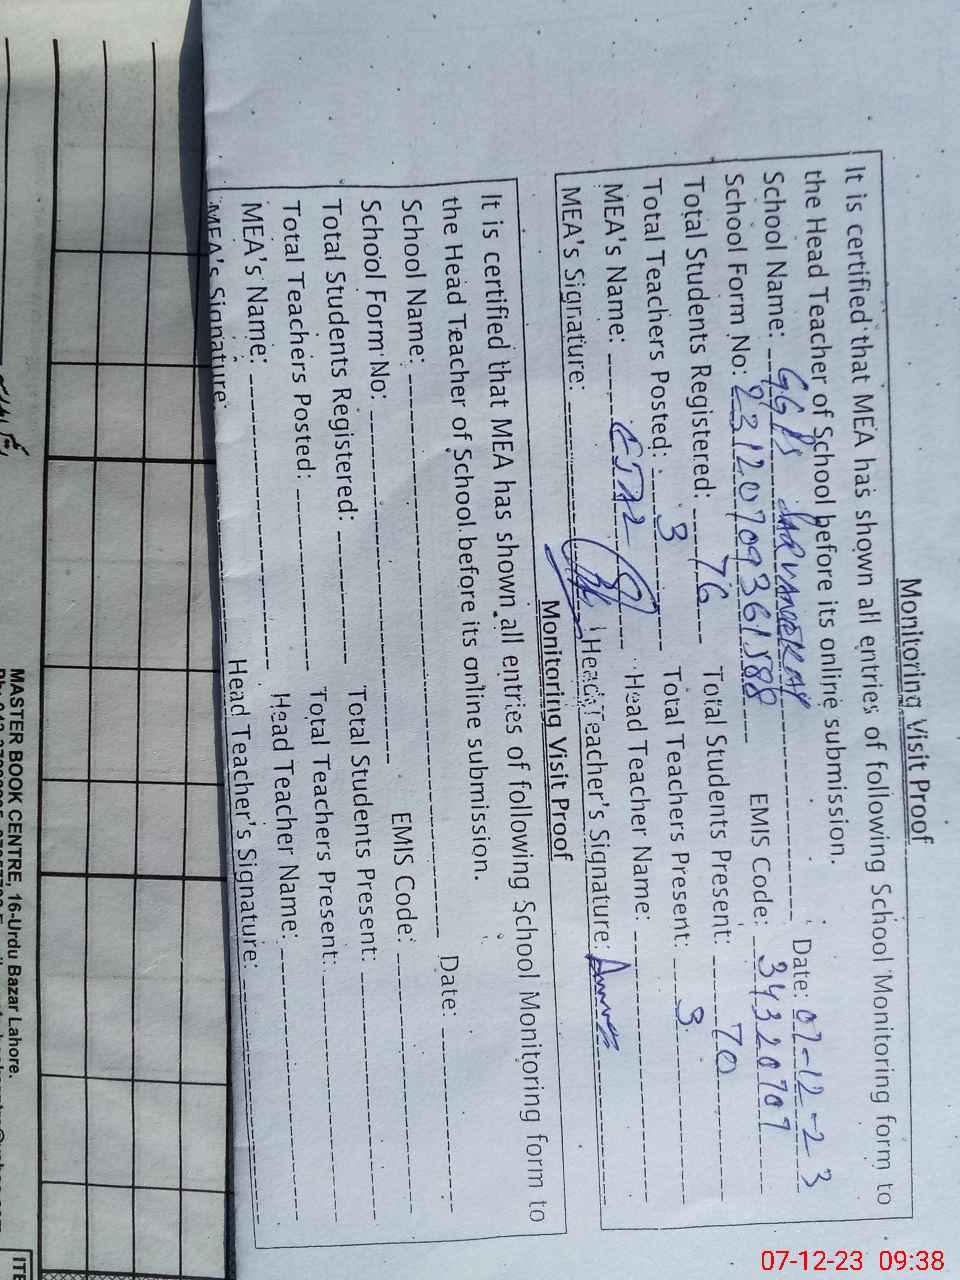 Monitoring Visit Proof
It is certified that MEA has shown all entries of following School Monitoring form to
the Head Teacher of School before its online submission.
School Name: GGPS Date: 07-12-23
School Form No: 23120709361588 EMIS Code: 34320709
Total Students Registered: 76 Total Students Present: 70
Total Teachers Posted: 3 Total Teachers Present: 3
MEA's Name: Head Teacher Name:
MEA's Signature: Head Teacher's Signature:
Monitoring Visit Proof
It is certified that MEA has shown all entries of following School Monitoring form to
the Head Teacher of School before its online submission.
School Name: Date:
School Form No: EMIS Code:
Total Students Registered: Total Students Present:
Total Teachers Posted: Total Teachers Present:
MEA's Name: Head Teacher Name:
MEA's Signature: Head Teacher's Signature:
MASTER BOOK CENTRE, 16-Urdu Bazar Lahore.
ITE
07-12-23 09:38